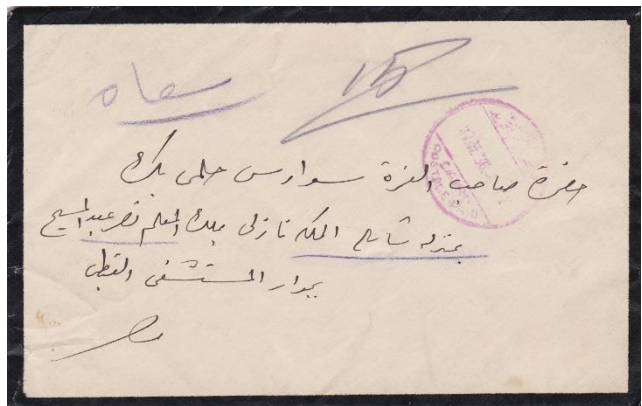 15
حضرة صاحب العزة سوارس حلمى بك
بمنزله شارع الملكه نازلى ملك المعلم نصر عبد المسيح
بجوار المستشفى القبطى
مصر